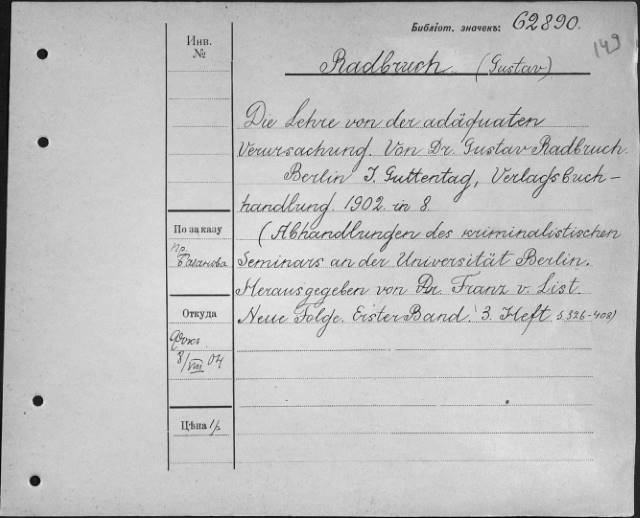 Библіот. значекъ: 62890.
149
Инв.
№
Radbruch (Gustav)
Die Lehre von der adäquaten
Verursachung. Von Dr. Gustav Radbruch.
Berlin J. Guttentag, Verlagsbuch-
handlung. 1902. in 8.
(Abhandlungen des kriminalistischen
Seminars an der Universität Berlin.
Herausgegeben von Dr. Franz v. List.
Neue Folge. Erster Band. 3. Heft. S. 326-408)
По заказу
пр.
Откуда
8/VIII 04
Цѣна 1р